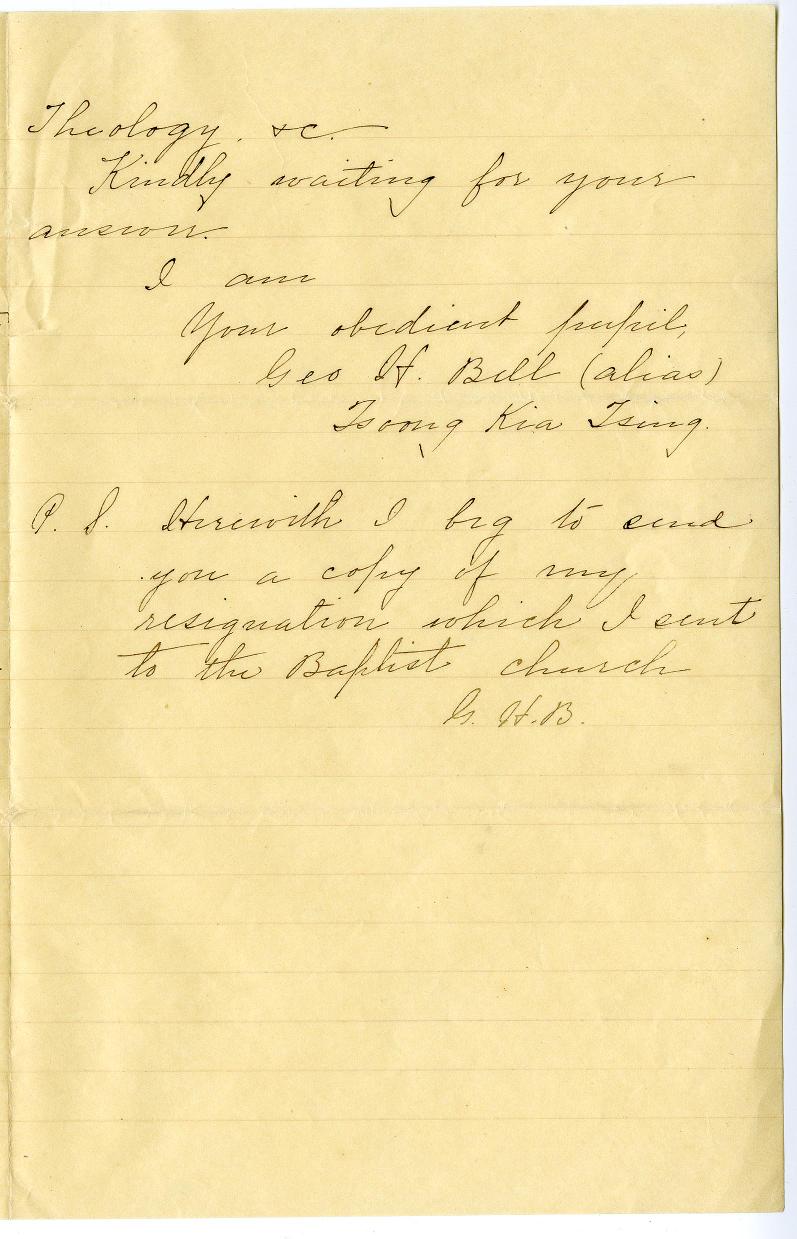 Theology. &c.
Kindly waiting for your
answer.
I am
Your obedient pupil,
Geo H. Bell (alias)
Tsong Kia Tsing.
P. S. Herewith I beg to send
you a copy of my
resignation which I sent
to the Baptist church
G. H. B.